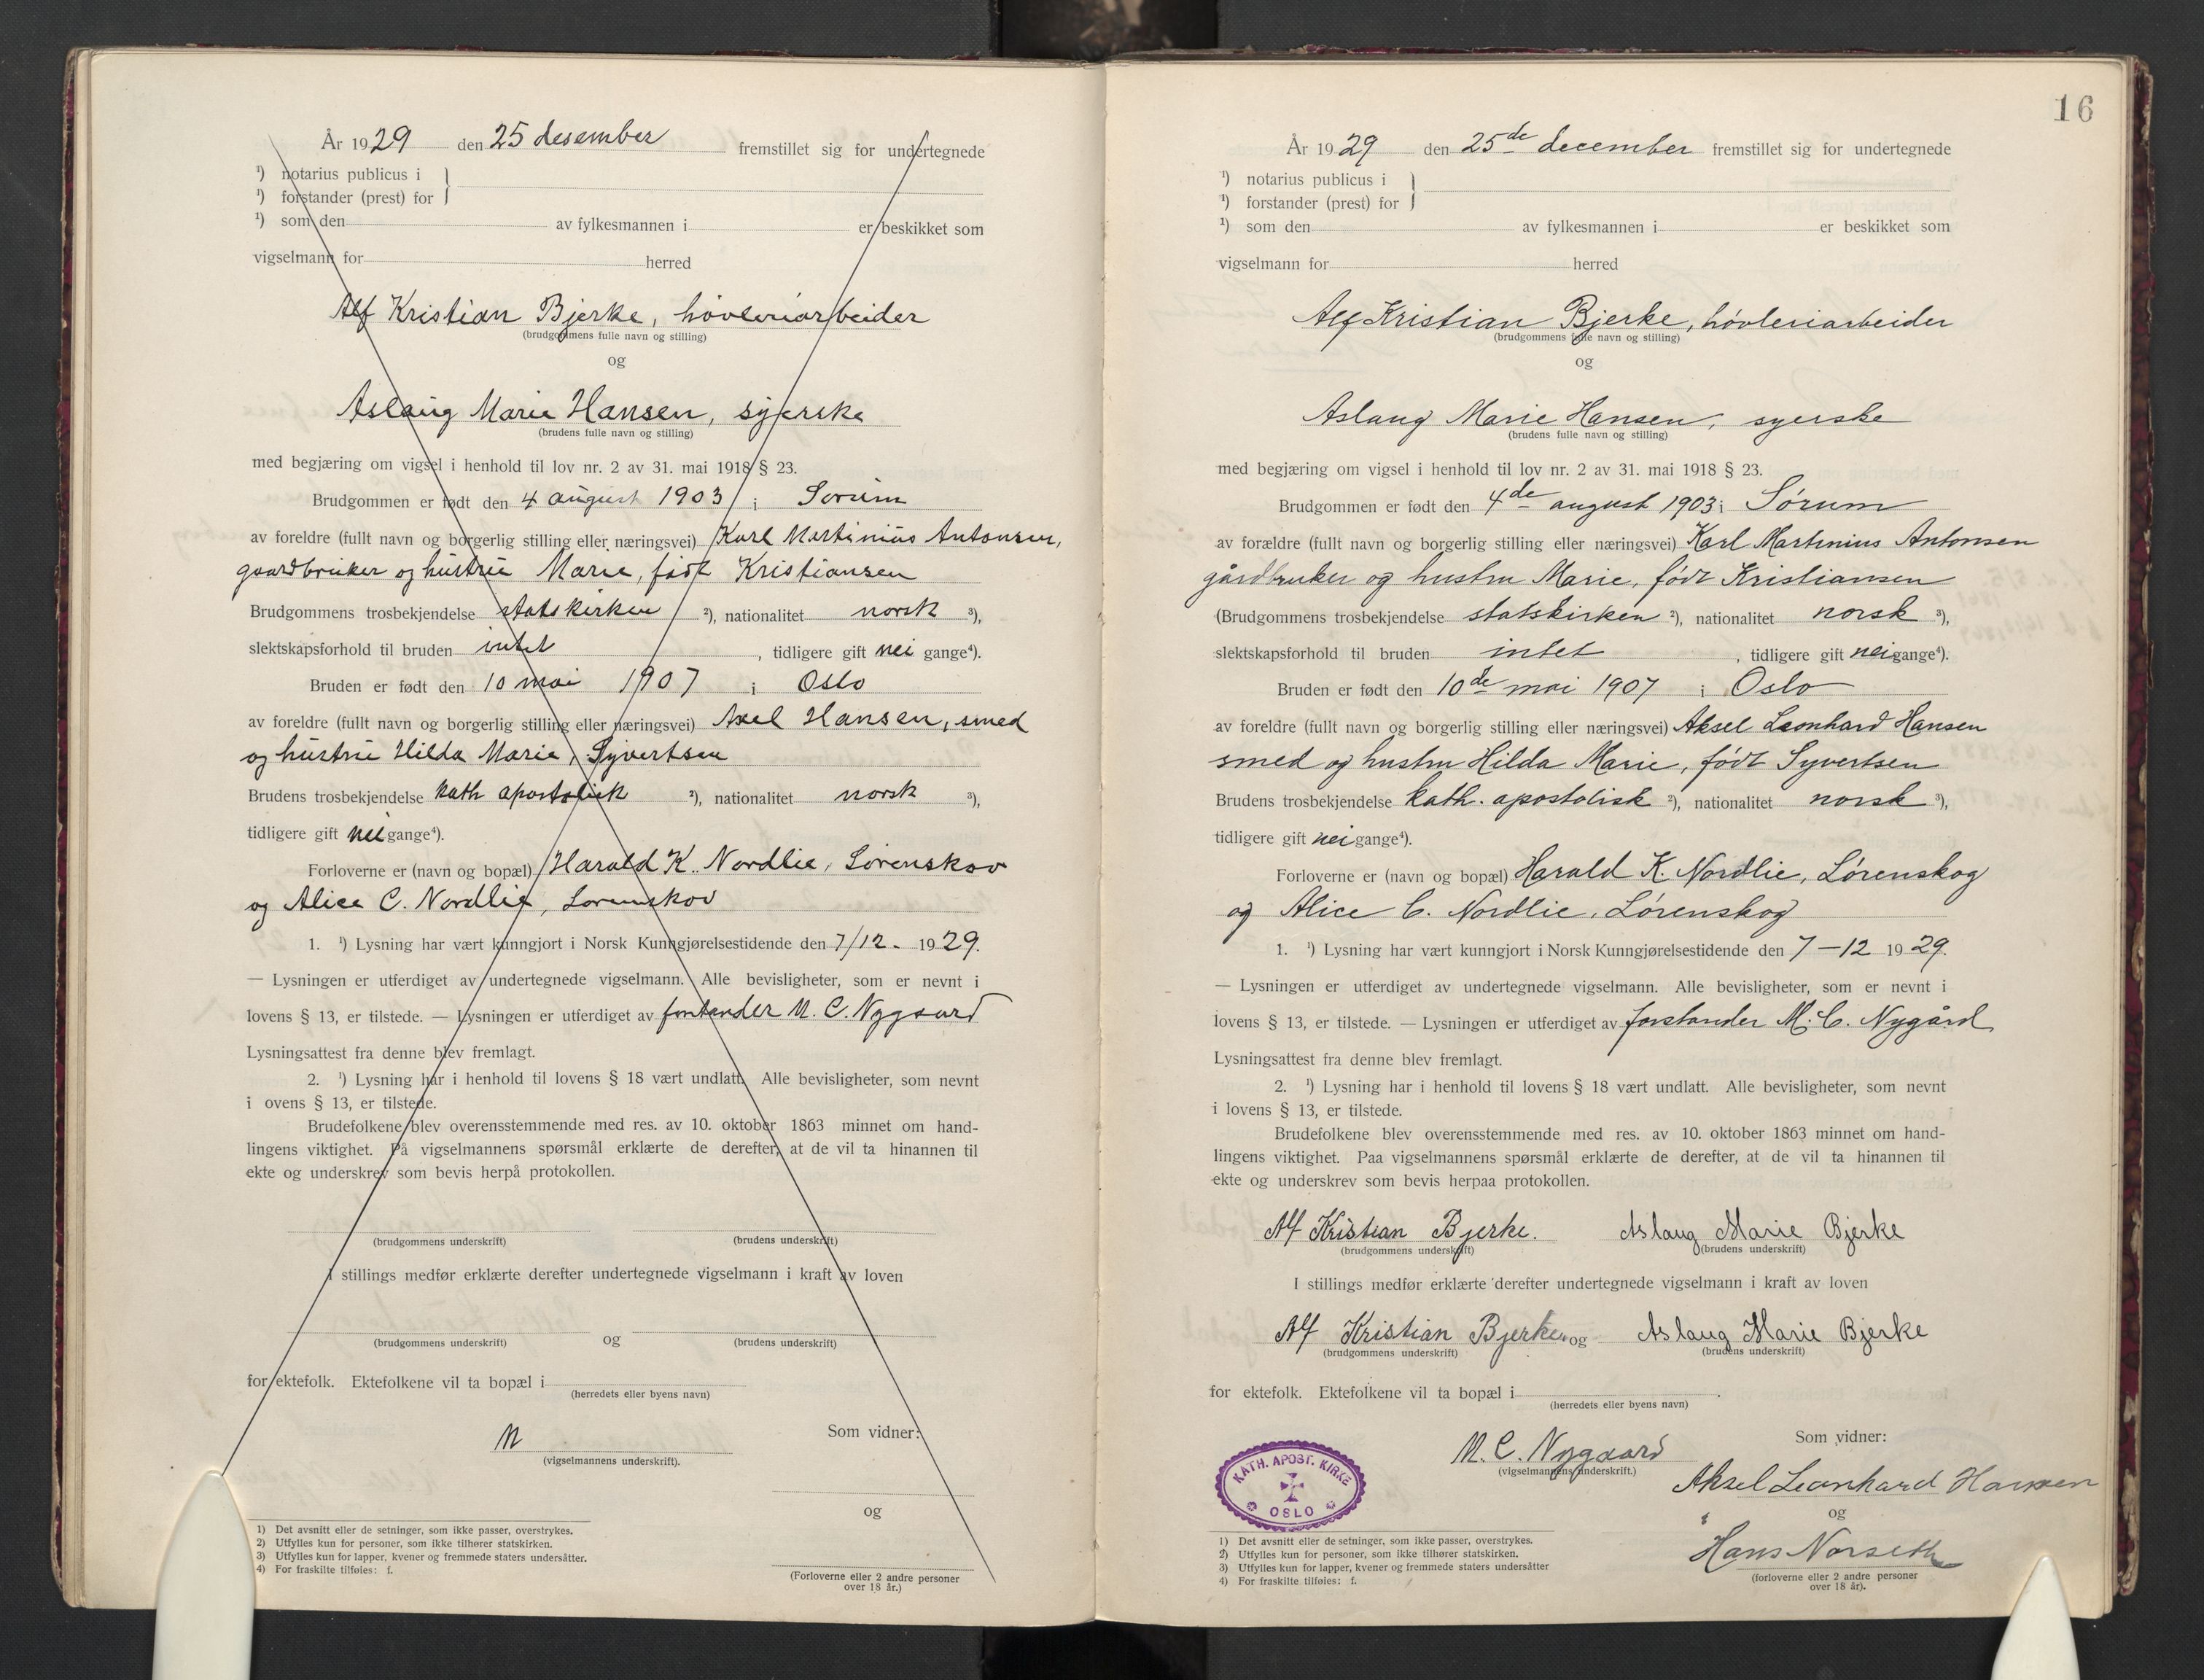 År 1929 den 25 desember fremstillet sig for undertegnede
¹) notarius publicus i
¹) forstander (prest) for
¹) som den av fylkesmannen i er beskikket som
vigselmann for herred
Alf Kristian Bjerke, høvleriarbeider
(brudgommens fulle navn og stilling)
og
Aslaug Marie Hansen, syerske
(brudens fulle navn og stilling)
med begjæring om vigsel i henhold til lov nr. 2 av 31. mai 1918 § 23.
Brudgommen er født den 4 august 1903 i Sørum
av foreldre (fullt navn og borgerlig stilling eller næringsvei) Karl Martinius Antonsen,
gaardbruker og hustru Marie, født Kristiansen
Brudgommens trosbekjendelse statskirken ²), nationalitet norsk ³),
slektskapsforhold til bruden intet , tidligere gift nei gange⁴).
Bruden er født den 10 mai 1907 i Oslo
av foreldre (fullt navn og borgerlig stilling eller næringsvei) Axel Hansen, smed
og hustru Hilda Marie, Syvertsen
Brudens trosbekjendelse kath apostolisk ²), nationalitet norsk ³),
tidligere gift nei gange⁴).
Forloverne er (navn og bopæl) Harald K. Nordlie, Lørenskov
og Alice C. Nordlie, Lørenskov
1. ¹) Lysning har vært kunngjort i Norsk Kunngjørelsestidende den 7/12. 1929.
— Lysningen er utferdiget av undertegnede vigselmann. Alle bevisligheter, som er nevnt i
lovens § 13, er tilstede. — Lysningen er utferdiget av forstander M. C. Nygaard
Lysningsattest fra denne blev fremlagt.
2. ¹) Lysning har i henhold til lovens § 18 vært undlatt. Alle bevisligheter, som nevnt
i ovens § 13, er tilstede.
Brudefolkene blev overensstemmende med res. av 10. oktober 1863 minnet om hand-
lingens viktighet. På vigselmannens spørsmål erklærte de derefter, at de vil ta hinannen til
ekte og underskrev som bevis herpå protokollen.
(brudgommens underskrift) (brudens underskrift)
I stillings medfør erklærte derefter undertegnede vigselmann i kraft av loven
og
(brudgommens underskrift) (brudens underskrift)
for ektefolk. Ektefolkene vil ta bopæl i
(herredets eller byens navn)
Som vidner:
M
(vigselmannens underskrift).
og
1) Det avsnitt eller de setninger, som ikke passer, overstrykes.
2) Utfylles kun for personer, som ikke tilhører statskirken.
3) Utfylles kun for lapper, kvener og fremmede staters undersåtter.
4) For fraskilte tilføies: f.
(Forloverne eller 2 andre personer
over 18 år.)
16
År 1929 den 25de december fremstillet sig for undertegnede
¹) notarius publicus i
¹) forstander (prest) for
¹) som den av fylkesmannen i er beskikket som
vigselmann for herred
Alf Kristian Bjerke, høvleriarbeider
(brudgommens fulle navn og stilling)
og
Aslaug Marie Hansen, syerske
(brudens fulle navn og stilling)
med begjæring om vigsel i henhold til lov nr. 2 av 31. mai 1918 § 23.
Brudgommen er født den 4de august 1903 i Sørum
av forældre (fullt navn og borgerlig stilling eller næringsvei) Karl Martinius Antonsen
gårdbruker og hustru Marie, født Kristiansen
(Brudgommens trosbekjendelse statskirken ²), nationalitet norsk ³),
slektskapsforhold til bruden intet , tidligere gift nei gange⁴).
Bruden er født den 10de mai 1907 i Oslo
av foreldre (fullt navn og borgerlig stilling eller næringsvei) Aksel Leonhard Hansen
smed og hustru Hilda Marie, født Syvertsen
Brudens trosbekjendelse kath. apostolisk ²), nationalitet norsk ³),
tidligere gift nei gange⁴).
Forloverne er (navn og bopæl) Harald K. Nordlie, Lørenskog
og Alice C. Nordlie, Lørenskog
1. ¹) Lysning har vært kunngjort i Norsk Kunngjørelsestidende den 7–12 1929.
— Lysningen er utferdiget av undertegnede vigselmann. Alle bevisligheter, som er nevnt i
lovens § 13, er tilstede. — Lysningen er utferdiget av forstander M. C. Nygård
Lysningsattest fra denne blev fremlagt.
2. ¹) Lysning har i henhold til lovens § 18 vært undlatt. Alle bevisligheter, som nevnt
i lovens § 13, er tilstede.
Brudefolkene blev overensstemmende med res. av 10. oktober 1863 minnet om hand-
lingens viktighet. Paa vigselmannens spørsmål erklærte de derefter, at de vil ta hinannen til
ekte og underskrev som bevis herpaa protokollen.
Alf Kristian Bjerke. Aslaug Marie Bjerke
(brudgommens underskrift) (brudens underskrift)
I stillings medfør erklærte derefter undertegnede vigselmann i kraft av loven
Alf Kristian Bjerke og Aslaug Marie Bjerke
(brudgommens underskrift) (brudens underskrift)
for ektefolk. Ektefolkene vil ta bopæl i .
(herredets eller byens navn)
Som vidner:
M. C. Nygaard
(vigselmannens underskrift.)
KATH. APOST. KIRKE
OSLO
Aksel Leonhard Hansen
og
Hans Norseth
1) Det avsnitt eller de setninger, som ikke passer, overstrykes.
2) Utfylles kun for personer, som ikke tilhører statskirken.
3) Utfylles kun for lapper, kvener og fremmede staters undersåtter
4) For fraskilte tilføies: f.
(forloverne eller 2 andre personer
over 18 år).